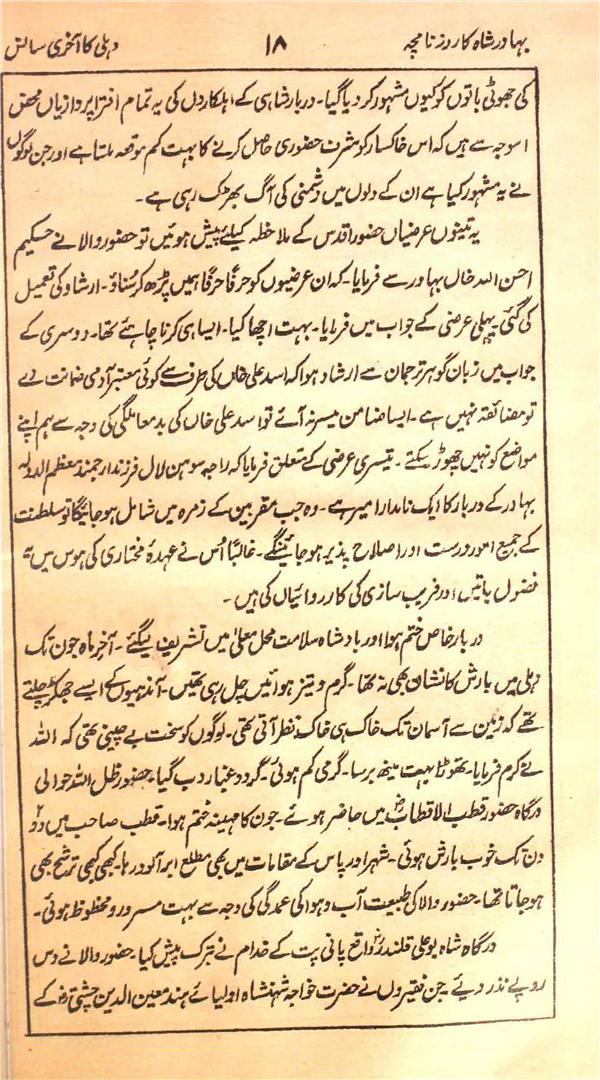 بہادر شاہ کا روزنامچہ ۱۸ دہلی کا آخری سانس
کی جھوٹی باتوں کو کیوں مشہور کر دیا گیا۔ دربار شاہی کے اہلکاروں کی یہ تمام افترا پردازیاں محض
اسوجہ سے ہیں کہ اس خاکسار کو شرف حضوری حاصل کرنے کا بہت کم موقعہ ملتا ہے اور جن لوگوں
نے یہ مشہور کیا ہے ان کے دلوں میں دشمنی کی آگ بھڑک رہی ہے۔
یہ تینوں عرضیاں حضور اقدس کے ملاحظہ کیلئے پیش ہوئیں تو حضور والا نے حکیم
احسن اللہ خاں بہادر سے فرمایا۔ کہ ان عرضیوں کو حرفًا حرفًا ہمیں پڑھ کر سُناؤ۔ ارشاد کی تعمیل
کی گئی۔ پہلی عرضی کے جواب میں فرمایا۔ بہت اچھا کیا۔ ایسا ہی کرنا چاہئے تھا۔ دوسری کے
جواب میں زبان گوہر ترجمان سے ارشاد ہوا کہ اسد علی خاں کی طرف سے کوئی معتبر آدمی ضمانت دے
تو مضائقہ نہیں ہے۔ ایسا ضامن میسر نہ آئے تو اسد علی خاں کی بد معاملگی کی وجہ سے ہم اپنے
مواضع کو نہیں چھوڑ سکتے۔ تیسری عرضی کے متعلق فرمایا کہ راجہ سوہن لال فرزند ارجمند معظم الدولہ
بہادر کے دربار کا ایک نامدار امیر ہے۔ وہ جب مقربین کے زمرہ میں شامل ہو جائیگا تو سلطنت
کے جمیع امور درست اور اصلاح پذیر ہو جائینگے۔ غالبًا اُس نے عہدۂ مختاری کی ہوس میں یہ
فضول باتیں اور فریب سازی کی کارروائیاں کی ہیں۔
دربار خاص ختم ہوا اور بادشاہ سلامت محل معلیٰ میں تشریف لیگئے۔ آخر ماہ جون تک
دہلی میں بارش کا نشان بھی نہ تھا۔ گرم و تیز ہوائیں چل رہی تھیں۔ آندھیوں کے ایسے جھکڑ چلتے
تھے کہ زمین سے آسمان تک خاک ہی خاک نظر آتی تھی۔ لوگوں کو سخت بے چینی تھی کہ اللہ
نے کرم فرمایا۔ تھوڑا بہت مینھ برسا۔ گرمی کم ہوئی۔ گرد و غبار دب گیا۔ حضور ظل اللہ حوالی
درگاہ حضور قطب الاقطابؒ میں حاضر ہوئے۔ جون کا مہینہ ختم ہوا۔ قطب صاحب میں دو
دن تک خوب بارش ہوئی۔ شہر اور پاس کے مقامات میں بھی مطلع ابر آلود رہا۔ کبھی کبھی ترشح بھی
ہو جاتا تھا۔ حضور والا کی طبیعت آب و ہوا کی عمدگی کی وجہ سے بہت مسرور و محظوظ ہوئی۔
درگاہ شاہ بو علی قلندرؒ واقع پانی پت کے خدام نے تبرک پیش کیا۔ حضور والا نے دس
روپے نذر دیئے۔ جن فقیروں نے حضرت خواجہ شہنشاہ اولیائے ہند معین الدین چشتیؒ کے